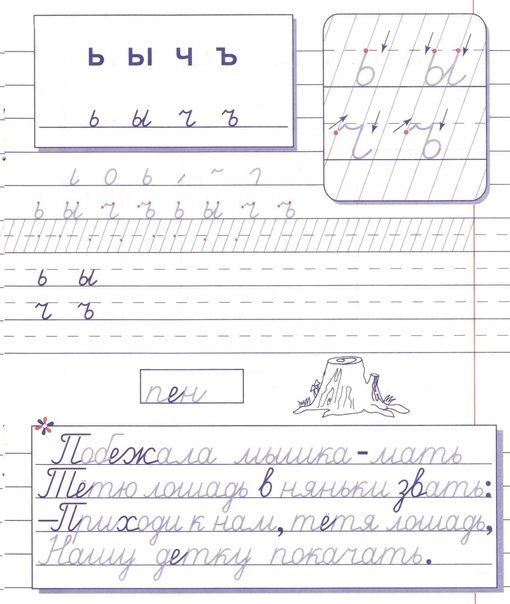 ь ы ч ъ
ь ы ч ъ
ь ы
ч ъ
ь ы ч ъ ь ы ч ъ
ь ы
ч ъ
пен
Побежала мышка-мать
Тётю лошадь в няньки звать:
–Приходи к нам, тётя лошадь,
Нашу детку покачать.